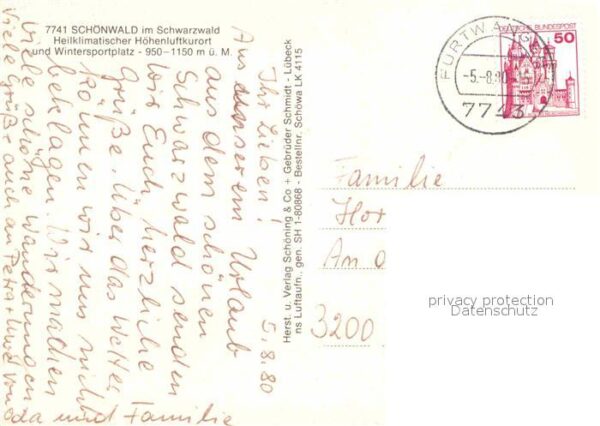 7741 SCHÖNWALD im Schwarzwald
Heilklimatischer Höhenluftkurort
und Wintersportplatz - 950-1150 m ü. M.
5.8.80
Ihr Lieben!
Aus unserem Urlaub
aus dem schönen
Schwarzwald senden
wir Euch herzliche
Grüße. Über das Wetter
können wir uns nicht
beklagen. Wir machen
viele schöne Wanderungen
Viele Grüße auch an Petra
und Familie
Herst. u. Verlag Schöning & Co + Gebrüder Schmidt - Lübeck
ns Luftaufn., gen. SH 1-80868 - Bestellnr. Schöwa LK 4115
FURTWA
-5.-8.80
7743
DEUTSCHE BUNDESPOST
50
Familie
Hor
An d
3200
privacy protection
Datenschutz